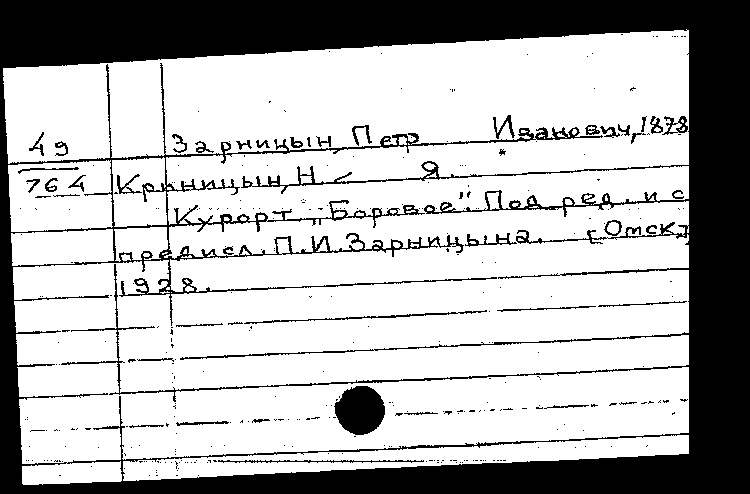 49 Зарницын, Петр Иванович, 1878
764 Криницын, Н. Я.
Курорт „Боровое". Под ред. и с
предисл. П. И. Зарницына. [Омск,]
1928.